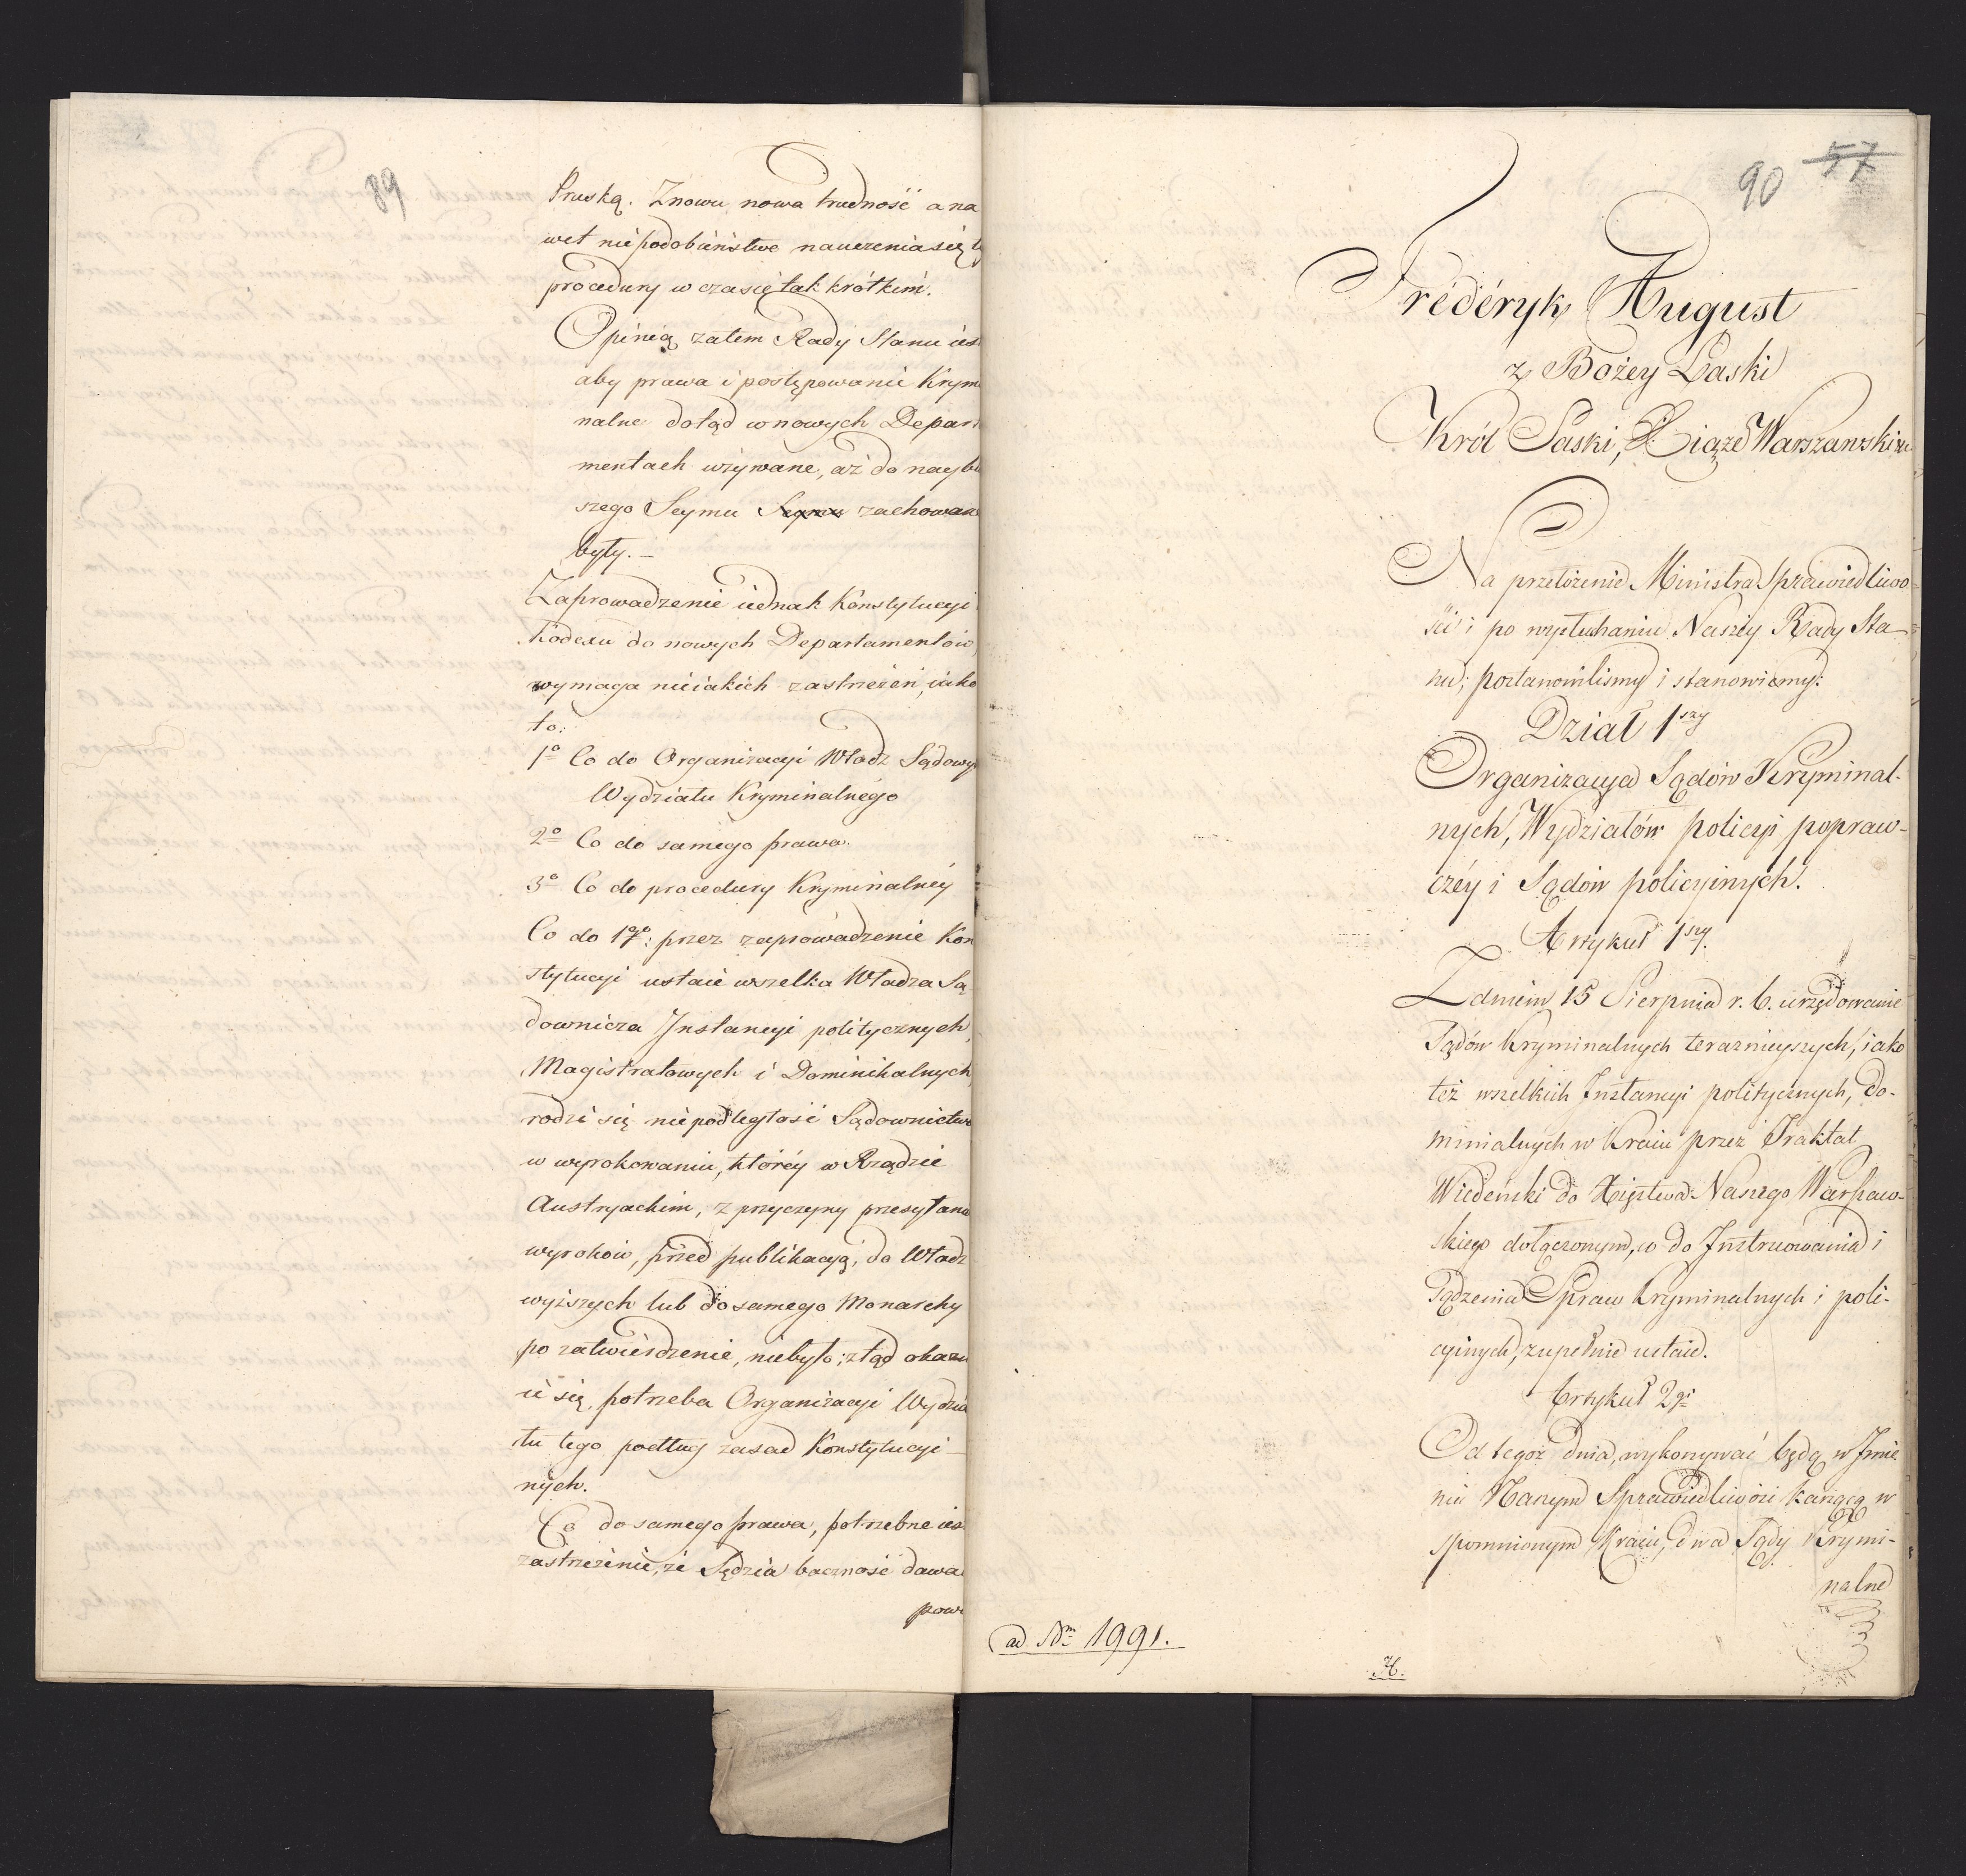 89
Pruską. Znowu nowa trudność a na
wet niepodobieństwo nauczenia się
procedury w czasie tak krótkim.
Opinią zatem Rady Stanu iest
aby prawa i postępowanie Krymi
nalne dotąd w nowych Depart
mentach używane, aż do naybli
szego Seymu Seymu zachowane
były. —
Zaprowadzenie iednak Konstytucyi
Kodexu do nowych Departamentów
wymaga nieiakich zastrzeżeń, iako
to:
1o Co do Organizacyi Władz Sądowy
Wydziału Kryminalnégo
2o Co do samego prawa.
3o Co do procedury Kryminalnéy
Co do 1go: przez zaprowadzenie Kon
stytucyi ustaie wszelka Władza Są
downicza Instancyi politycznych,
Magistratowych i Dominikalnych,
rodzi się niepodległość Sądownictwa
w wyrokowaniu, któréy w Rządzie
Austryackim, z przyczyny przesyłania
wyroków, przed publikacyą, do Władz
wyższych lub do samego Monarchy
po zatwierdzenie, niebyło; ztąd okazu
ie się, potrzeba Organizacyi Wydzia
łu tego podług zasad Konstytucyi
nych.
Co do samego prawa, potrzebne iest
zastrzeżenie, że Sędzia baczność dawać
powi
90 57
Fréderyk August
z Bożey Łaski
Król Saski, Xiąże Warszawski &c
Na przełożenie Ministra Sprawiedliwo-
ści i po wysłuchaniu Naszey Rady Sta-
nu; postanowiliśmy i stanowiemy:
Dział 1szy
Organizacya Sądów Kryminal-
nych, Wydziałów policyi popraw-
czéy i Sądów policyinych.
Artykuł 1szy.
Z dniem 15 Sierpnia r. b. urzędowanie
Sądów Kryminalnych teraznieyszych, iako
też wszelkich Instancyi politycznych, do-
minialnych w Kraiu przez Traktat
Wiedeński do Xięstwa Naszego Warszaw-
skiego dołączonym, co do Instruowania i
Sądzenia Spraw Kryminalnych i poli-
cyinych, zupełnie ustaie.
Artykuł 2gi
Od tegoż dnia, wykonywać będą w Imie
niu Naszym Sprawiedliwość karzącą w
spomnionym Kraiu, dwa Sądy Krymi-
nalne
ad Nrm 1991.
H.